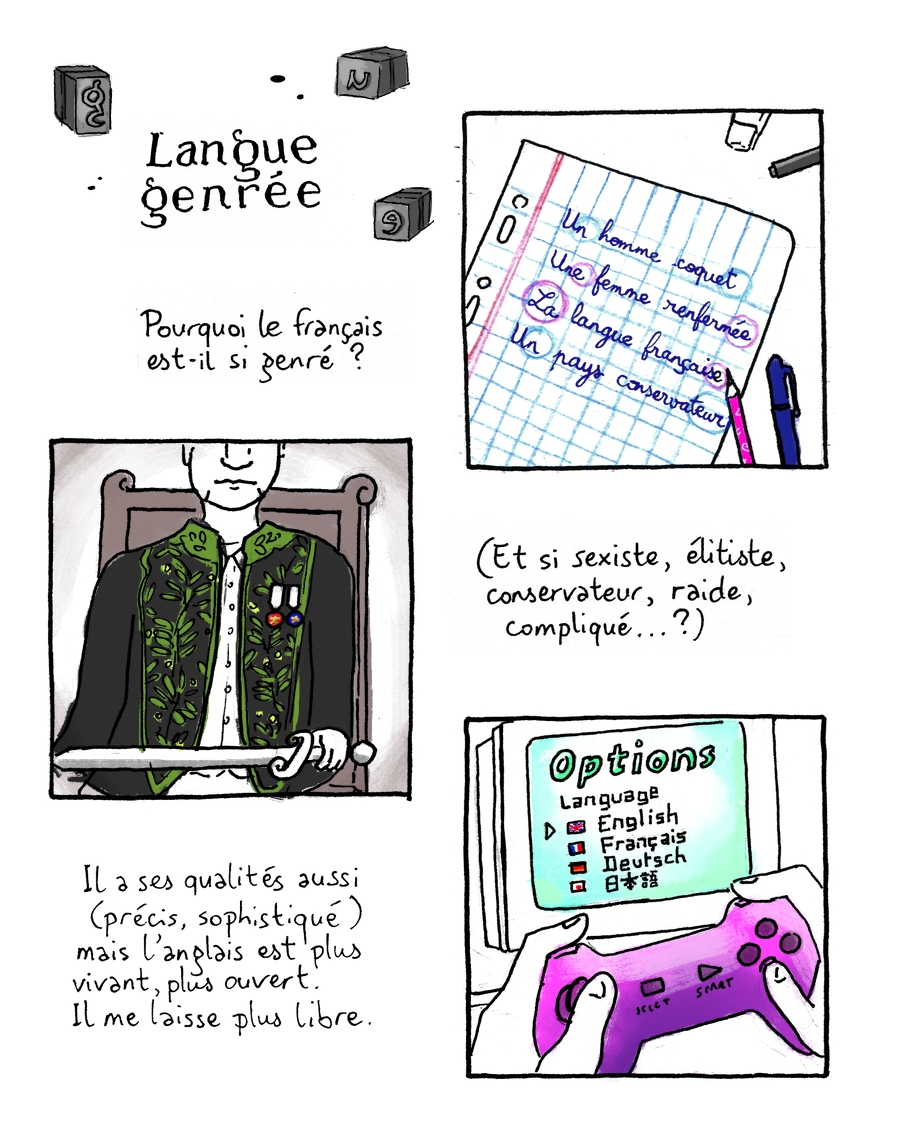 g
n
g
Langue
genrée
Pourquoi le français
est-il si genré ?
Un homme coquet
Une femme renfermée
La langue française
Un pays conservateur
(Et si sexiste, élitiste,
conservateur, raide,
compliqué...?)
Il a ses qualités aussi
(précis, sophistiqué)
mais l'anglais est plus
vivant, plus ouvert.
Il me laisse plus libre.
Options
Language
English
Français
Deutsch
日本語
SELCT
START